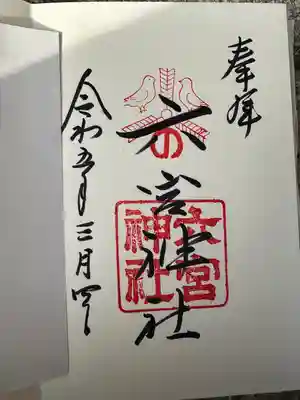 奉拝
六宮神社
六宮
神社
令和五年三月四日